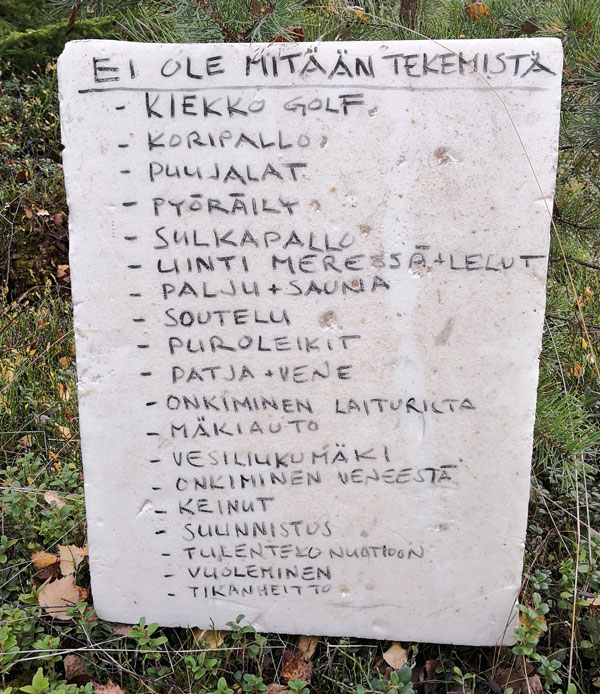 EI OLE MITÄÄN TEKEMISTÄ
- KIEKKO GOLF
- KORIPALLO
- PUUJALAT
- PYÖRÄILY
- SULKAPALLO
- UINTI MERESSÄ+LELUT
- PALJU+SAUNA
- SOUTELU
- PUROLEIKIT
- PATJA+VENE
- ONKIMINEN LAITURILTA
- MÄKIAUTO
- VESILIUKUMÄKI
- ONKIMINEN VENEESTÄ
- KEINUT
- SUUNNISTUS
- TULENTEKO NUOTIOON
- VUOLEMINEN
- TIKANHEITTO